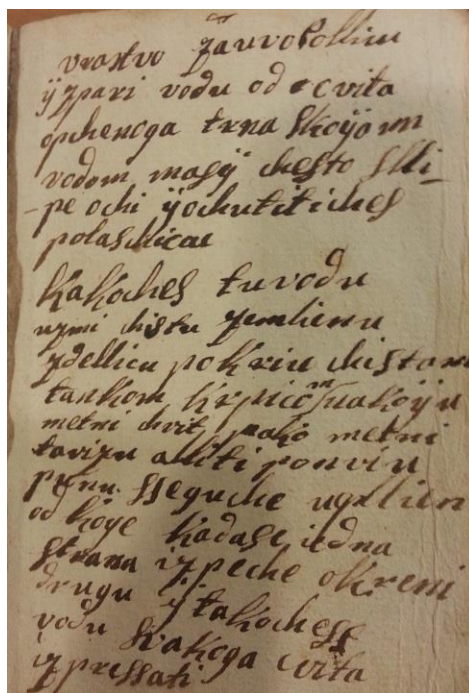 vrastvo za uvo Pollicu
ÿzpari vodu od cvita
opchenoga trna Skoÿom
vodom masÿ chesto Slli-
-pe ochi ÿ ochutit iches
polaschicae
Kakoches tu vodu
uzmi chistu zemlienu
zdellicu pokriu chistom
tankom krpicom na koÿu
metni cvit, pako metni
tavizu alliti ponvicu
punu sseguche uglien
od koge kadase iedna
strana izpeche okreni
drugu ÿ takochess
vodu Svakoga cvita
izpressati